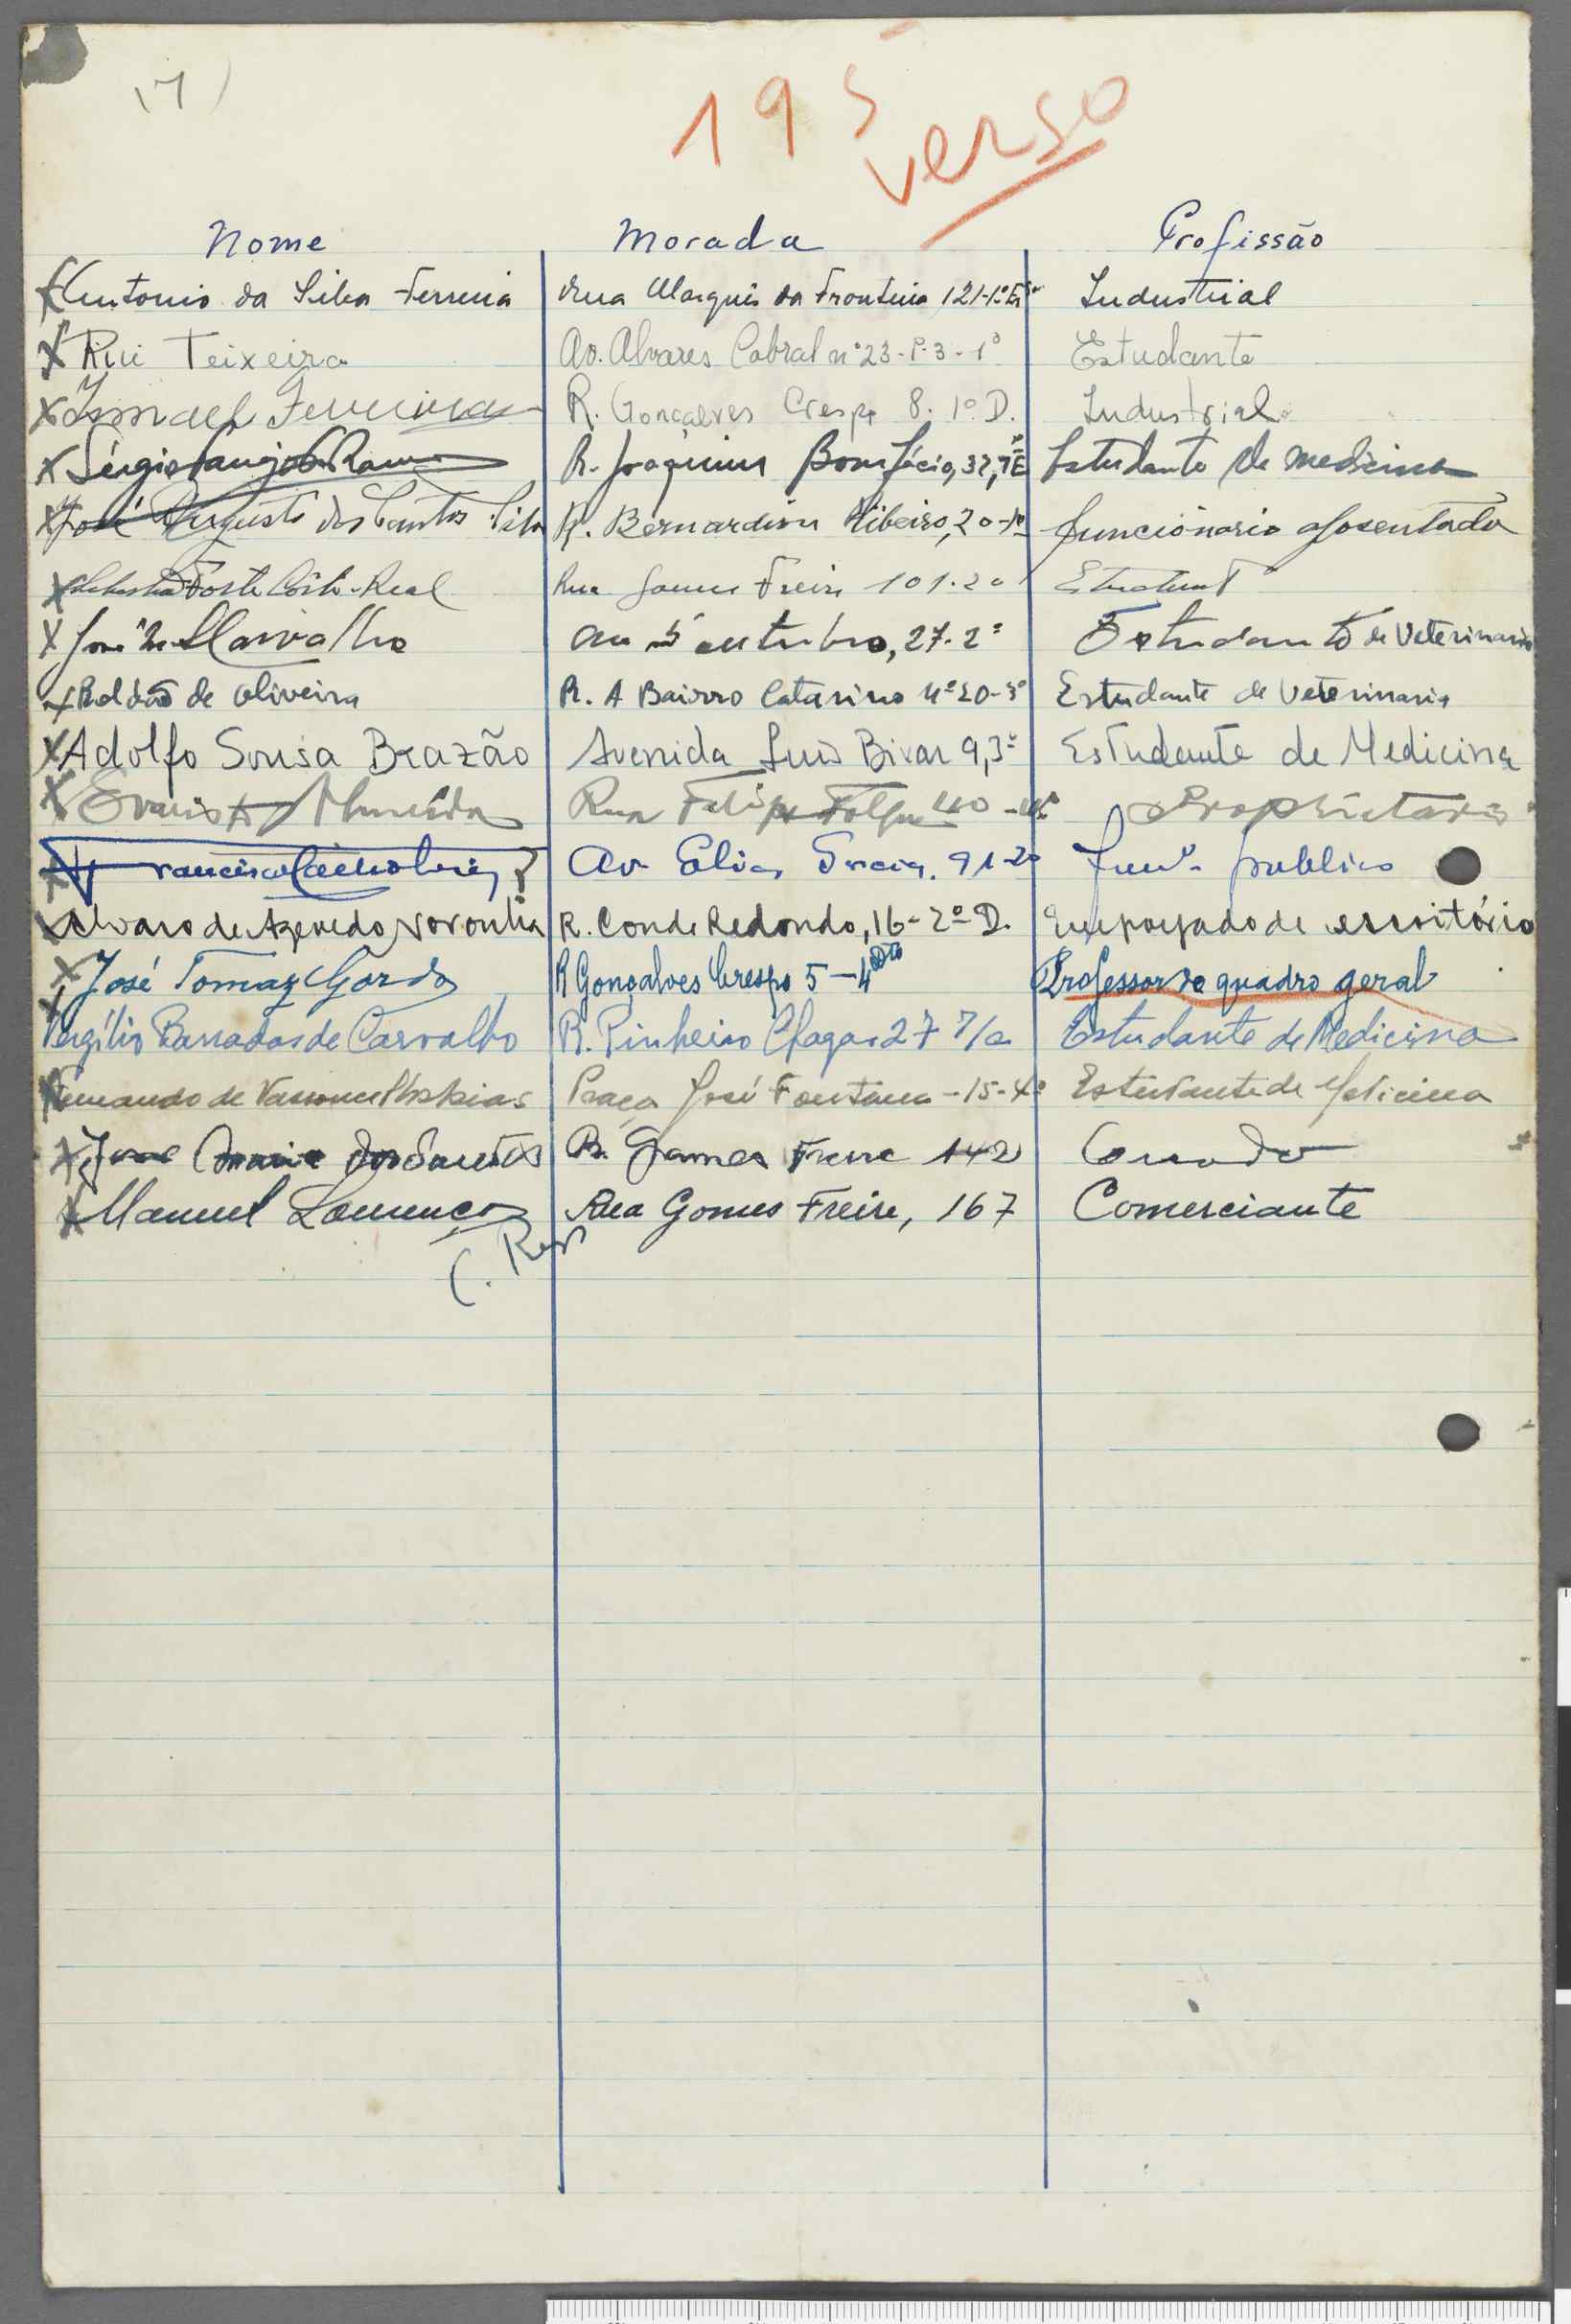 (7)
195
verso
Nome Morada Profissão
X Antonio da Silva Ferreira Rua Marquês da Fronteira 121-1º Eº Industrial
X Rui Teixeira Av. Alvares Cabral nº 23-P-3-1º Estudante
X Ismael Ferreira R. Gonçalves Crespo 8. 1º D. Industrial
X Sérgio Ramos R. Joaquim Bonifácio, 37, 1º E Estudante de medicina
X José Augusto dos Santos Silva R. Bernardim Ribeiro, 20-1º funcionário aposentado
X Côrte-Real Rua Gomes Freire 101-2º Estudante
X José Carvalho Av 5 outubro, 27-2º Estudante de Veterinaria
X Roldão de Oliveira R. A Bairro Catarino Nº 20-3º Estudante de Veterinaria
X Adolfo Sousa Brazão Avenida Luís Bivar 9,3º Estudante de Medicina
X Evaristo Almeida Rua Felipe Folque 40 Proprietario
X Francisco Av Elias Garcia. 91-2º Funº publico
X Alvaro de Azevedo Noronha R. Conde Redondo, 16-2º D. Empregado de escritório
X José Tomaz Gordo R Gonçalves Crespo 5-4º Dto Professor do quadro geral
X Vergílio Barradas de Carvalho R. Pinheiro Chagas 27 Estudante de Medicina
X Fernando de Vasconcellos Praça José Fontana-15-4º Estudante de Medicina
X José Maria dos Santos R. Gomes Freire 142 Criado
X Manuel Lourenço Rua Gomes Freire, 167 Comerciante